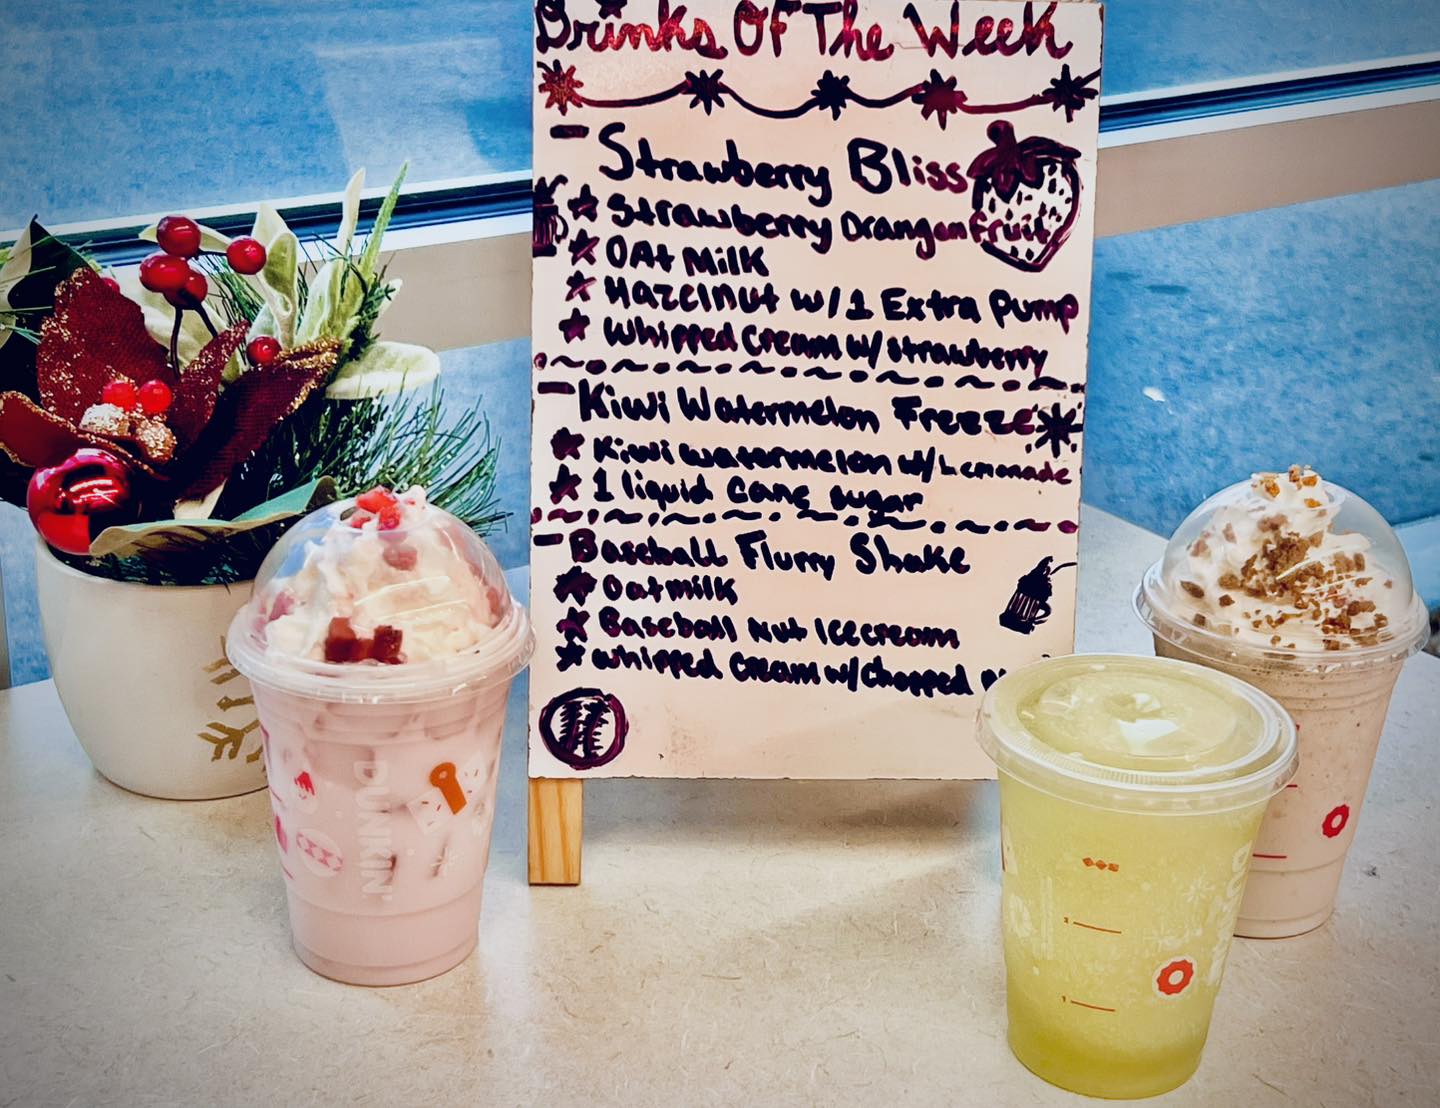 Drinks Of The Week
- Strawberry Bliss
Strawberry Drangonfruit
Oat Milk
Hazelnut w/1 Extra Pump
Whipped Cream w/ strawberry
- Kiwi Watermelon Freeze
Kiwi watermelon w/ Lemonade
1 liquid cane sugar
- Baseball Flurry Shake
Oatmilk
Baseball Nut Icecream
whipped cream w/ chopped
DUNKIN'